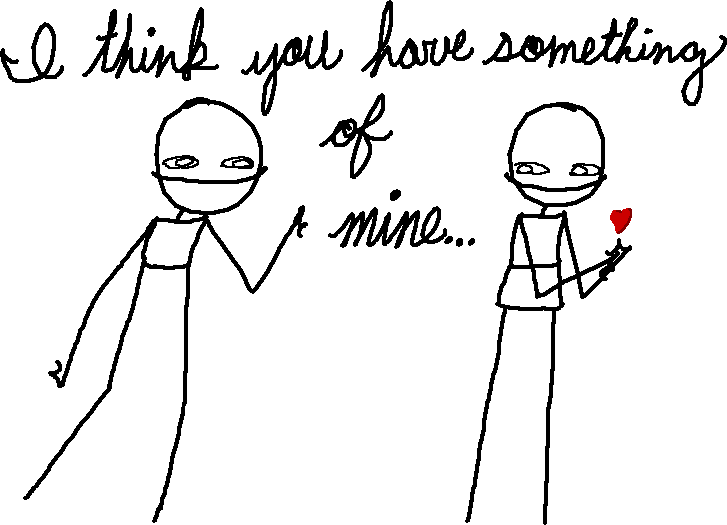 I think you have something
of
mine...